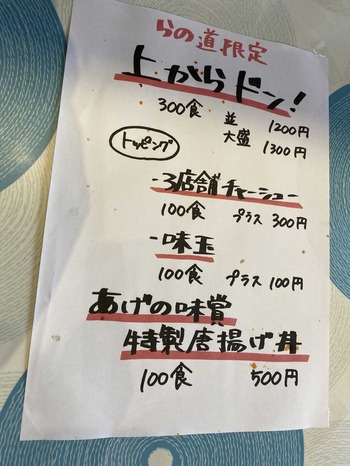 らの道限定
上からドン!
300食 並 1200円
大盛 1300円
トッピング
-3店舗チャーシュー
100食 プラス 300円
-味玉
100食 プラス 100円
あげの味賞
特製唐揚げ丼
100食 500円